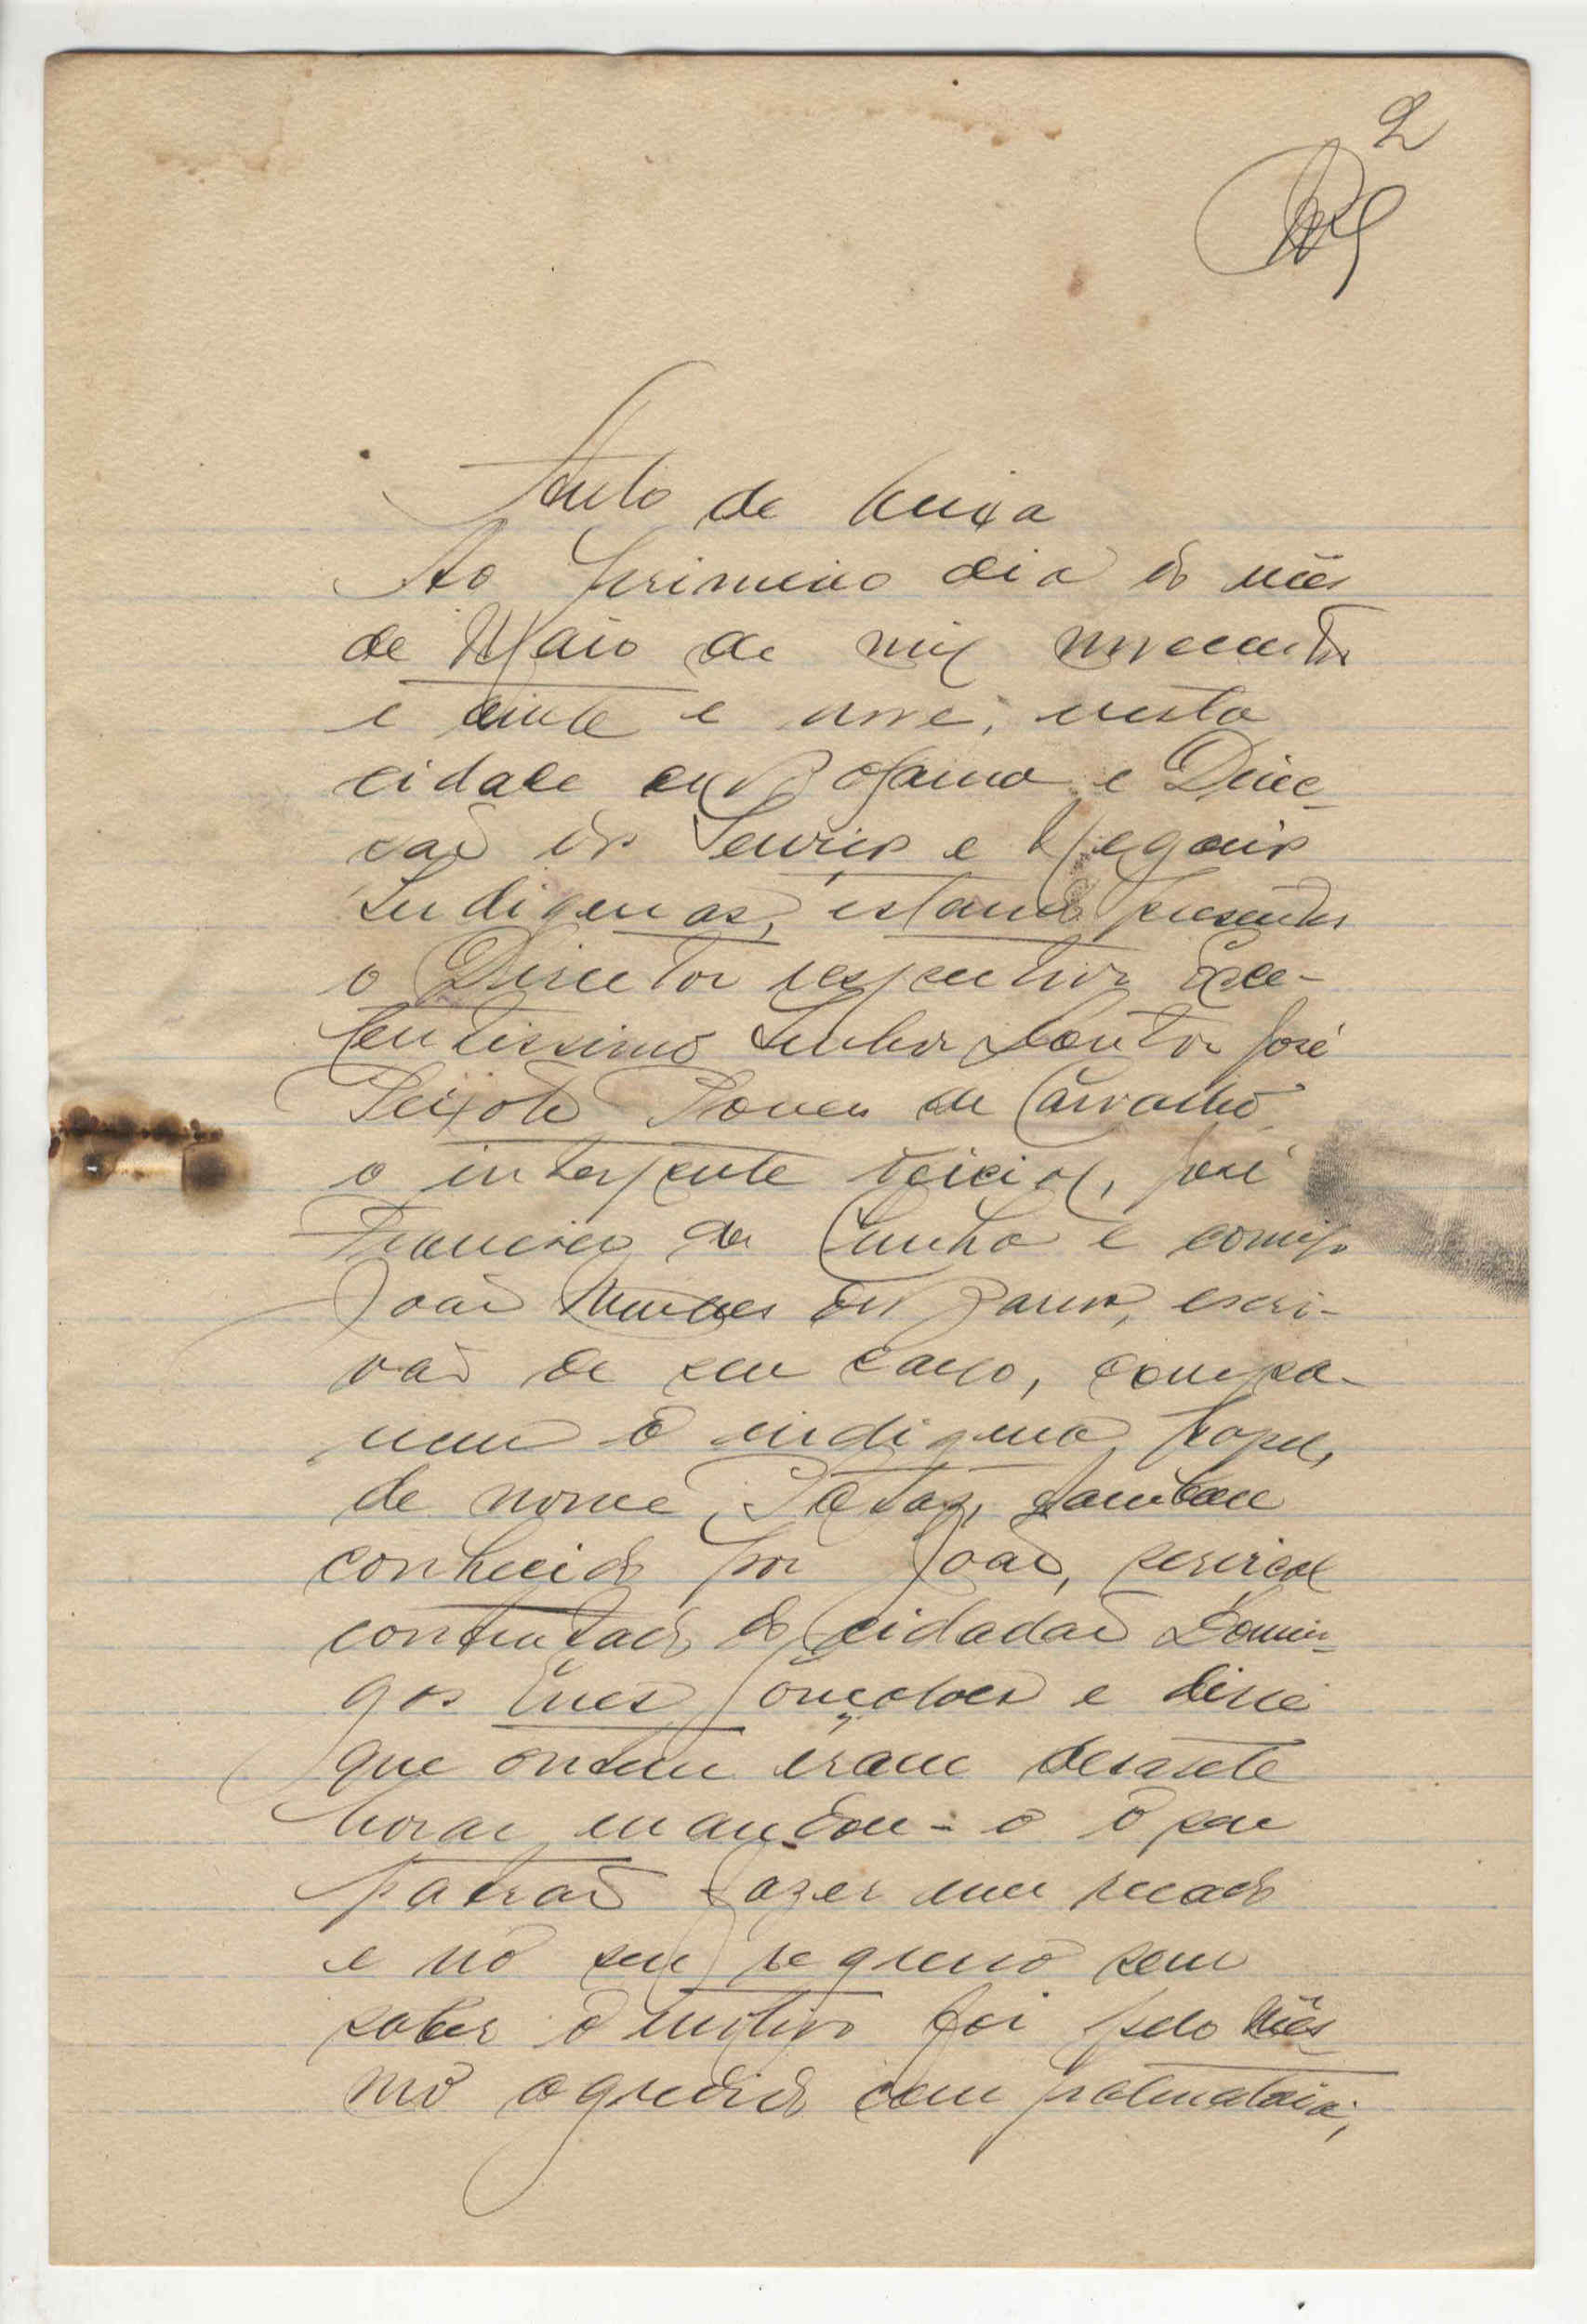 2
Auto de queixa
Ao primeiro dia do mês
de Maio de mil novecentos
e vinte e nove, nesta
cidade de Bolama e Direc-
ção dos Serviços e Negocios
Indigenas, estando presentes
o Director respectivo Exce-
lentissimo Senhor Doutor José
Peixoto Ponces de Carvalho,
o interprete oficial, José
Francisco da Cunha e comigo
João Mendes
escri-
vão de seu cargo, compa-
receu o indigena papel,
de nome
tambem
conhecido por João, serviçal
contratado do cidadão Domin-
gos Enes Gonçalves e disse
que ontem eram desasete
horas mandou-o o seu
patrão fazer um recado
e no seu regresso sem
saber o motivo foi pelo mês-
mo agredido com palmatoria,